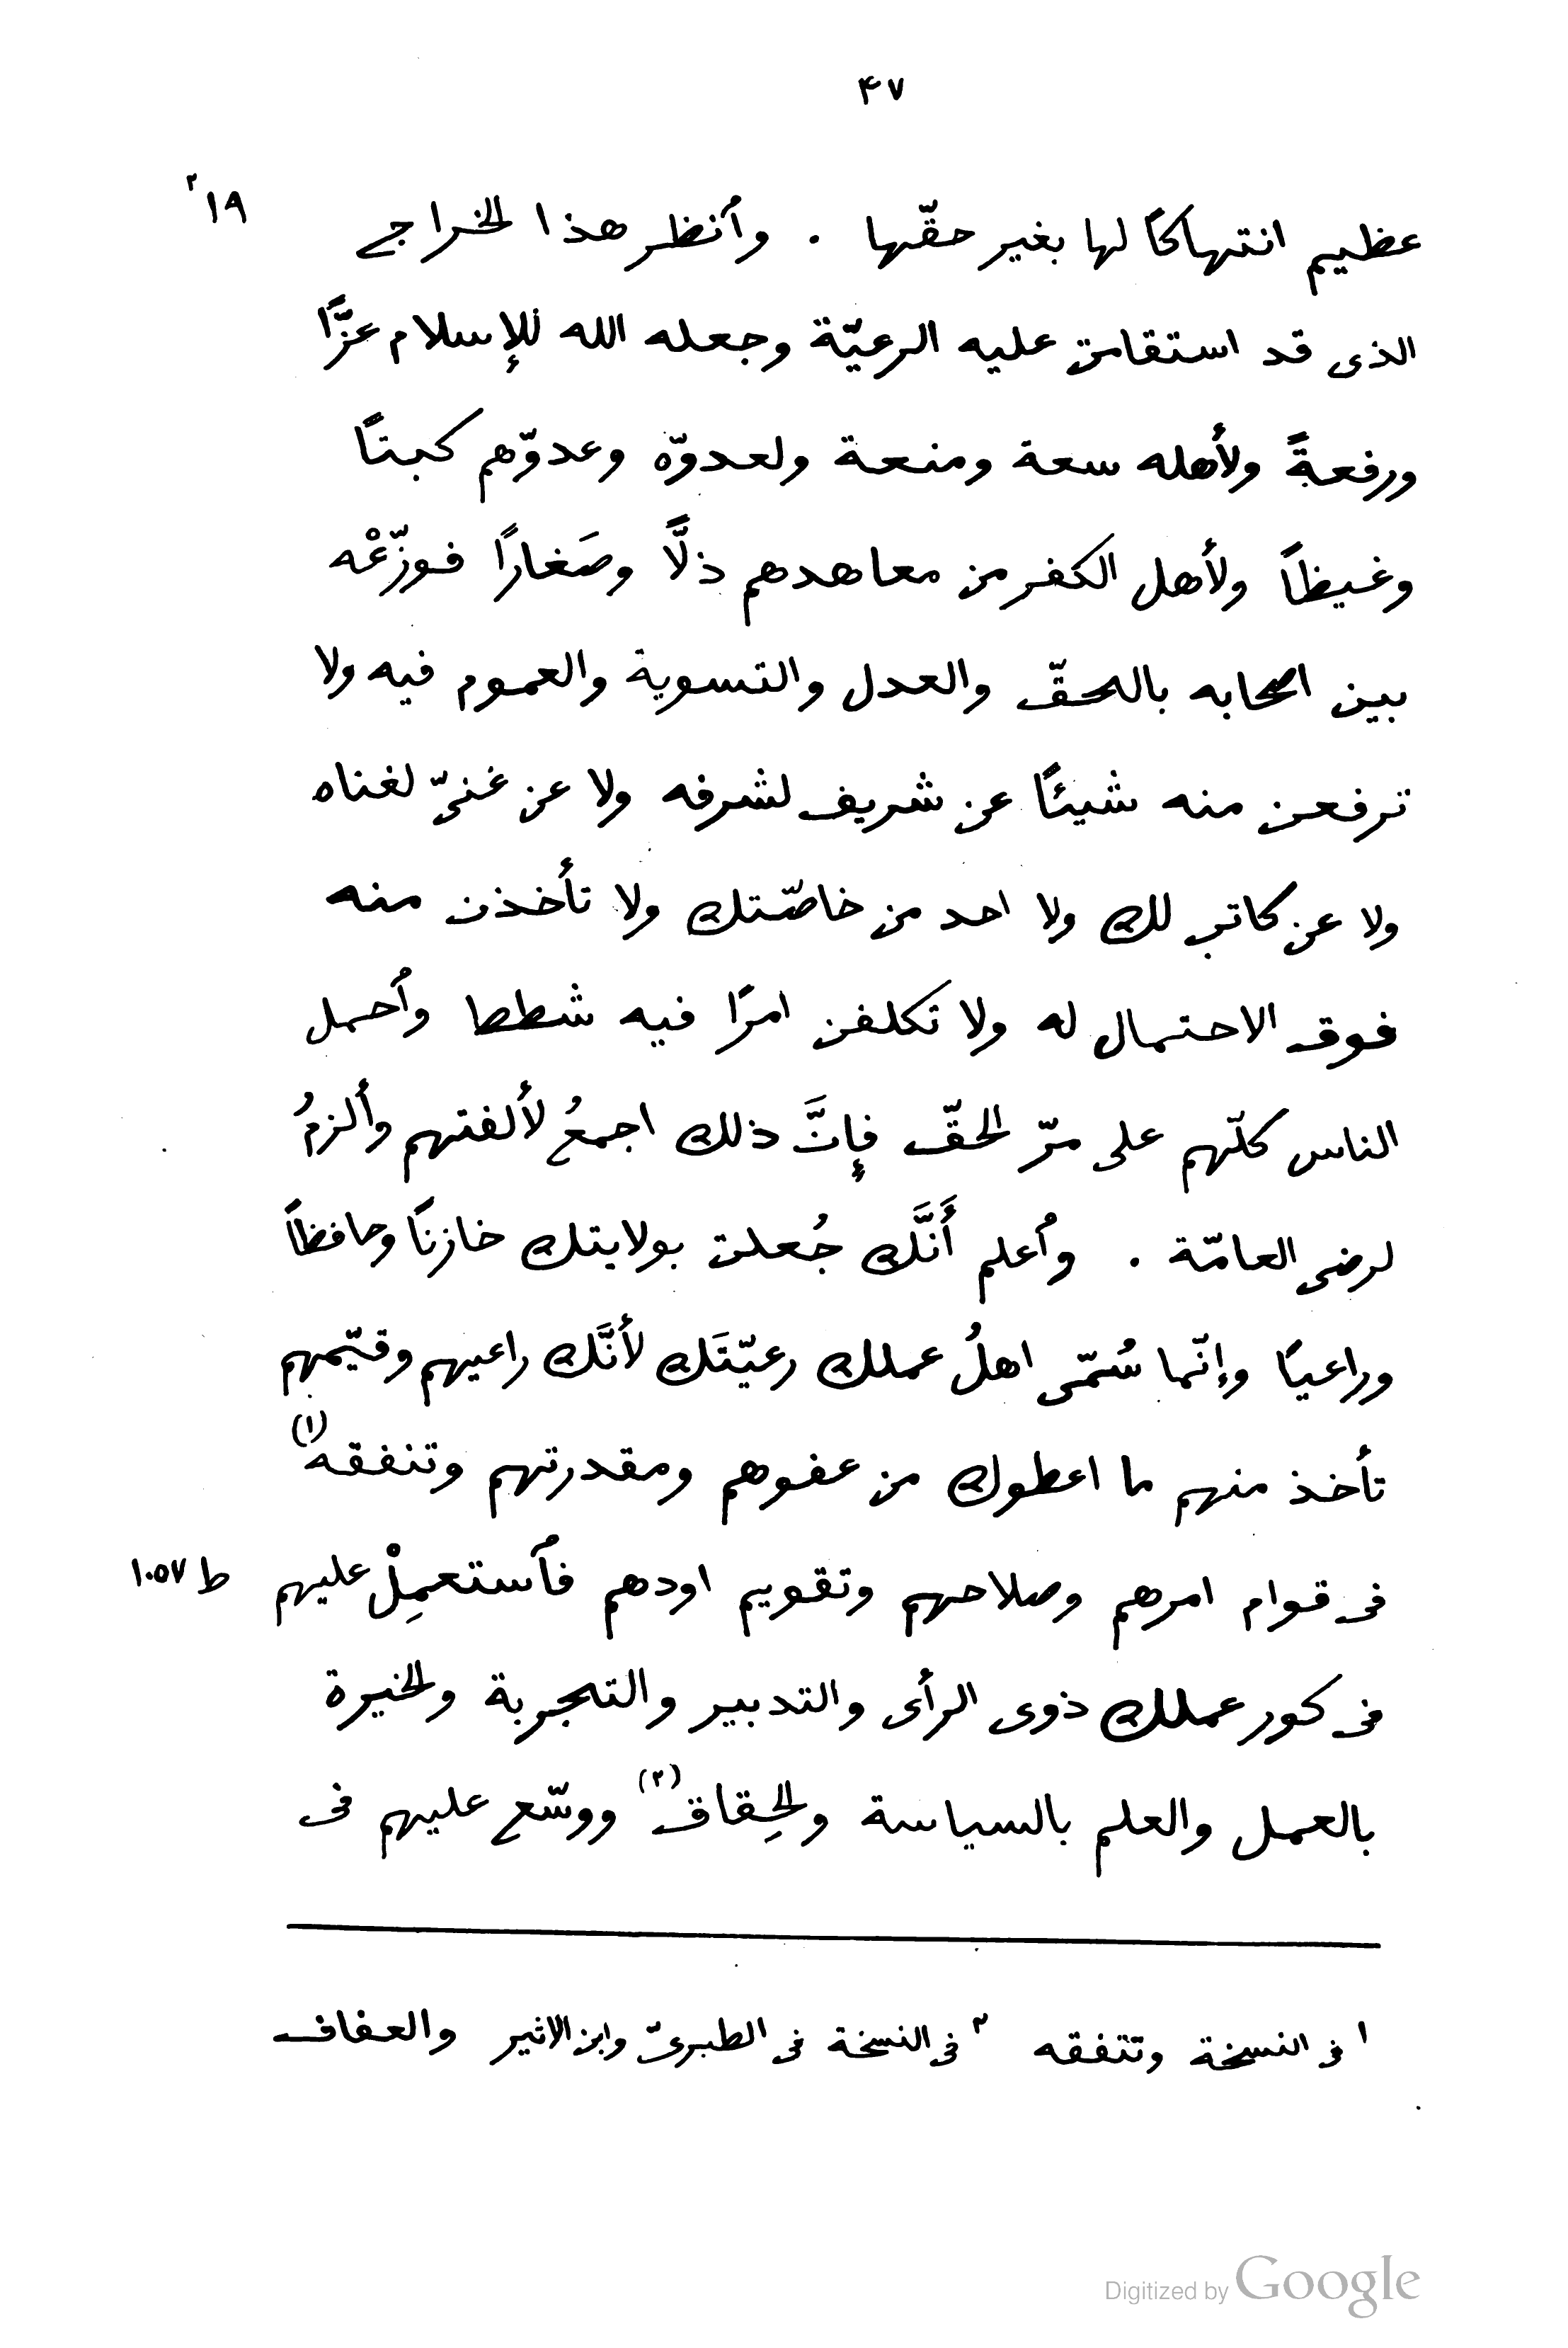 ٤٧
عظيم انتهاكًا لها بغير حقّها . وٱنظر هذا الخراج ١٩ ٢
الذى قد استقامت عليه الرعيّة وجعله الله للإسلام عزًّا
ورفعةً ولأهله سعة ومنعة ولعدوّه وعدوّهم كبتًا
وغيظاً ولأهل الكفر من معاهدهم ذلًّا وصَغارًا فوزّعْه
بين اصحابه بالحقّ والعدل والتسوية والعموم فيه ولا
ترفعن منه شيئًا عن شريف لشرفه ولا عن غنىّ لغناه
ولا عن كاتب لك ولا احد من خاصّتك ولا تأخذن منه
فوق الاحتمال له ولا تكلفن امرًا فيه شططا وٱحمل
الناس كلّهم على مرّ الحقّ فإنَّ ذلك اجمعُ لألفتهم وألزمُ
لرضى العامّة . وٱعلم أَنَّك جُعلت بولايتك خازنًا وحافظاً
وراعيًا وإنّما سُمّى اهلُ عملك رعيّتَك لأنَّك راعيهم وقيّمهم
تأخذ منهم ما اعطوك من عفوهم ومقدرتهم وتنفقه (١)
فى قوام امرهم وصلاحهم وتقويم اودهم فٱستعمِلْ عليهم ط ١٠٥٧
فى كور عملك ذوى الرأى والتدبير والتجربة والخيرة
بالعمل والعلم بالسياسة والحِقاق (٢) ووسّع عليهم فى
١ فى النسخة وتتفقه ٢ فى النسخة فى الطبرىّ وابن الاثير والعفاف
Digitized by Google